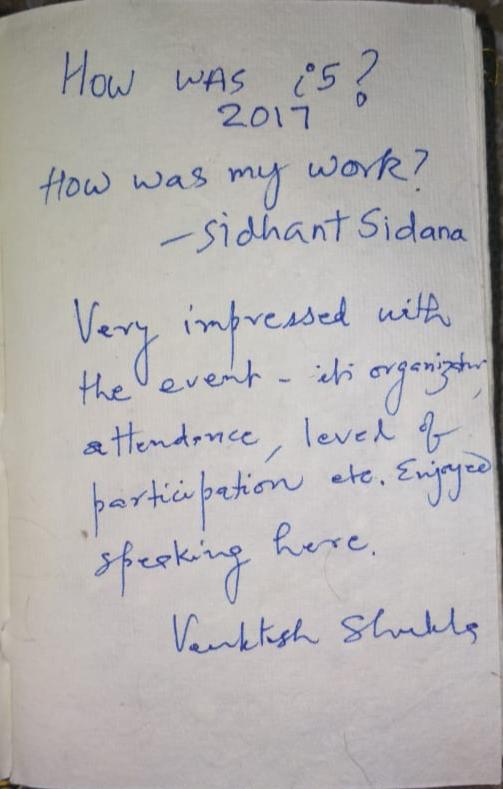 How was i5?
2017
How was my work?
- Sidhant Sidana
Very impressed with
the event - its organization,
attendance, level of
participation etc. Enjoyed
speaking here.
Venktesh Shukla